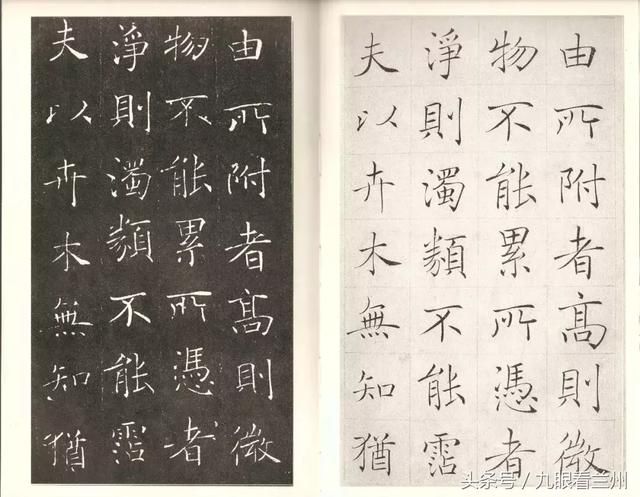 由所附者髙則微
物不能累所憑者
淨則濁類不能霑
夫以卉木無知猶
由所附者髙則微
物不能累所憑者
淨則濁類不能霑
夫以卉木無知猶
头条号/九眼看兰州